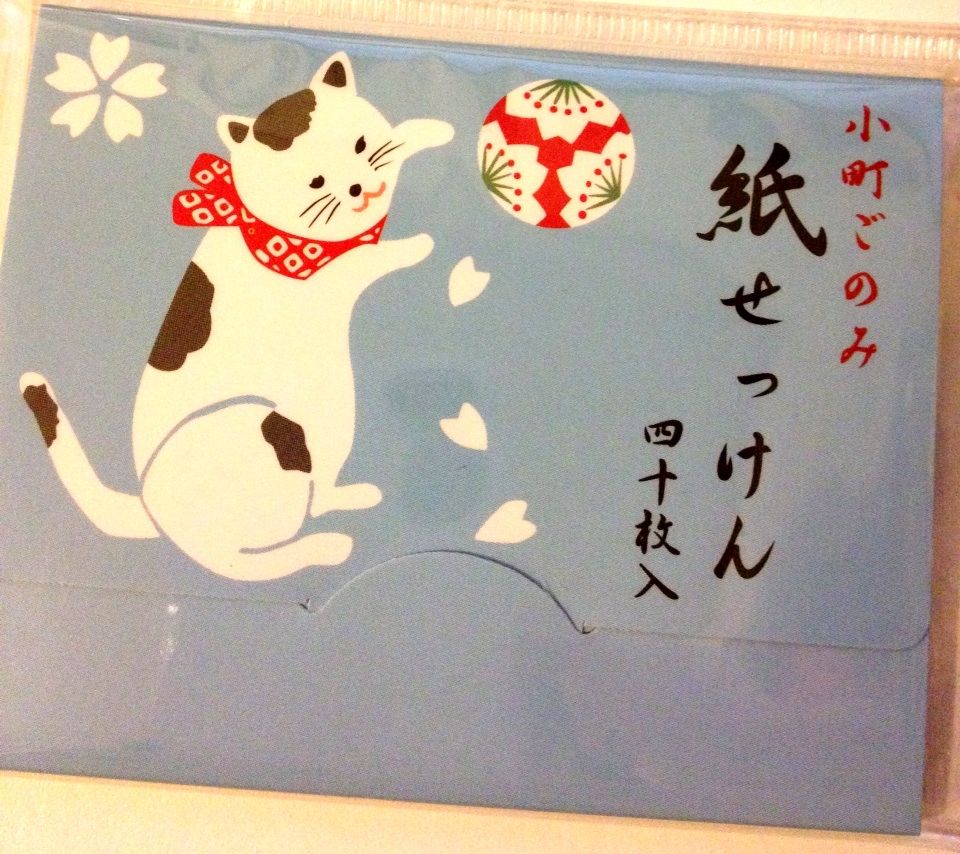 小町ごのみ
紙せっけん
四十枚入